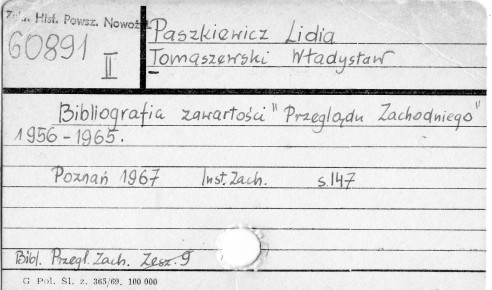 Zakł. Hist. Powsz. Nowoż.
60891
II
Paszkiewicz Lidia
Tomaszewski Władysław
Bibliografia zawartości "Przeglądu Zachodniego"
1956-1965.
Poznań 1967 Inst. Zach. s.147
Bibl. Przegl. Zach. Zesz. 9
G Pol. Śl. z. 365/69. 100 000